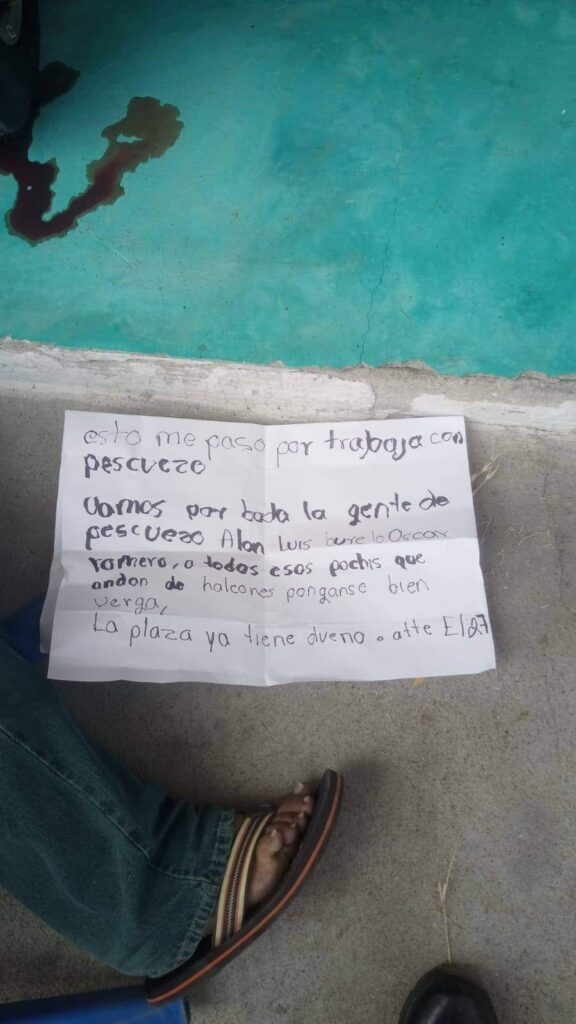 esto me paso por trabaja con
pescuezo
Vamos por toda la gente de
pescuezo Alan Luis burelo Oscar
romero, a todos esos pochis que
andan de halcones ponganse bien
verga,
La plaza ya tiene dueno. atte El 27